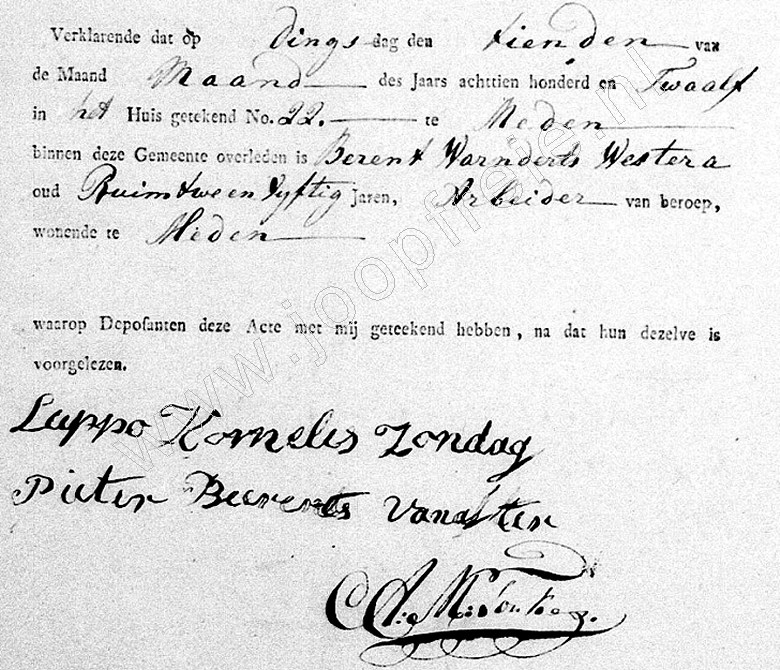 Verklarende dat op Dings dag den tienden van
de Maand Maand des Jaars achttien honderd en Twaalf
in het Huis getekend No. 22. te Meden
binnen deze Gemeente overleden is Berent Warnderts Westera
oud Ruim twe en Vyftig Jaren, Arbeider van beroep,
wonende te Meden
waarop Deposanten deze Acte met mij geteekend hebben, na dat hun dezelve is
voorgelezen.
Luppo Kornelis Zondag
Pieter Beerents
www.joopfreije.nl